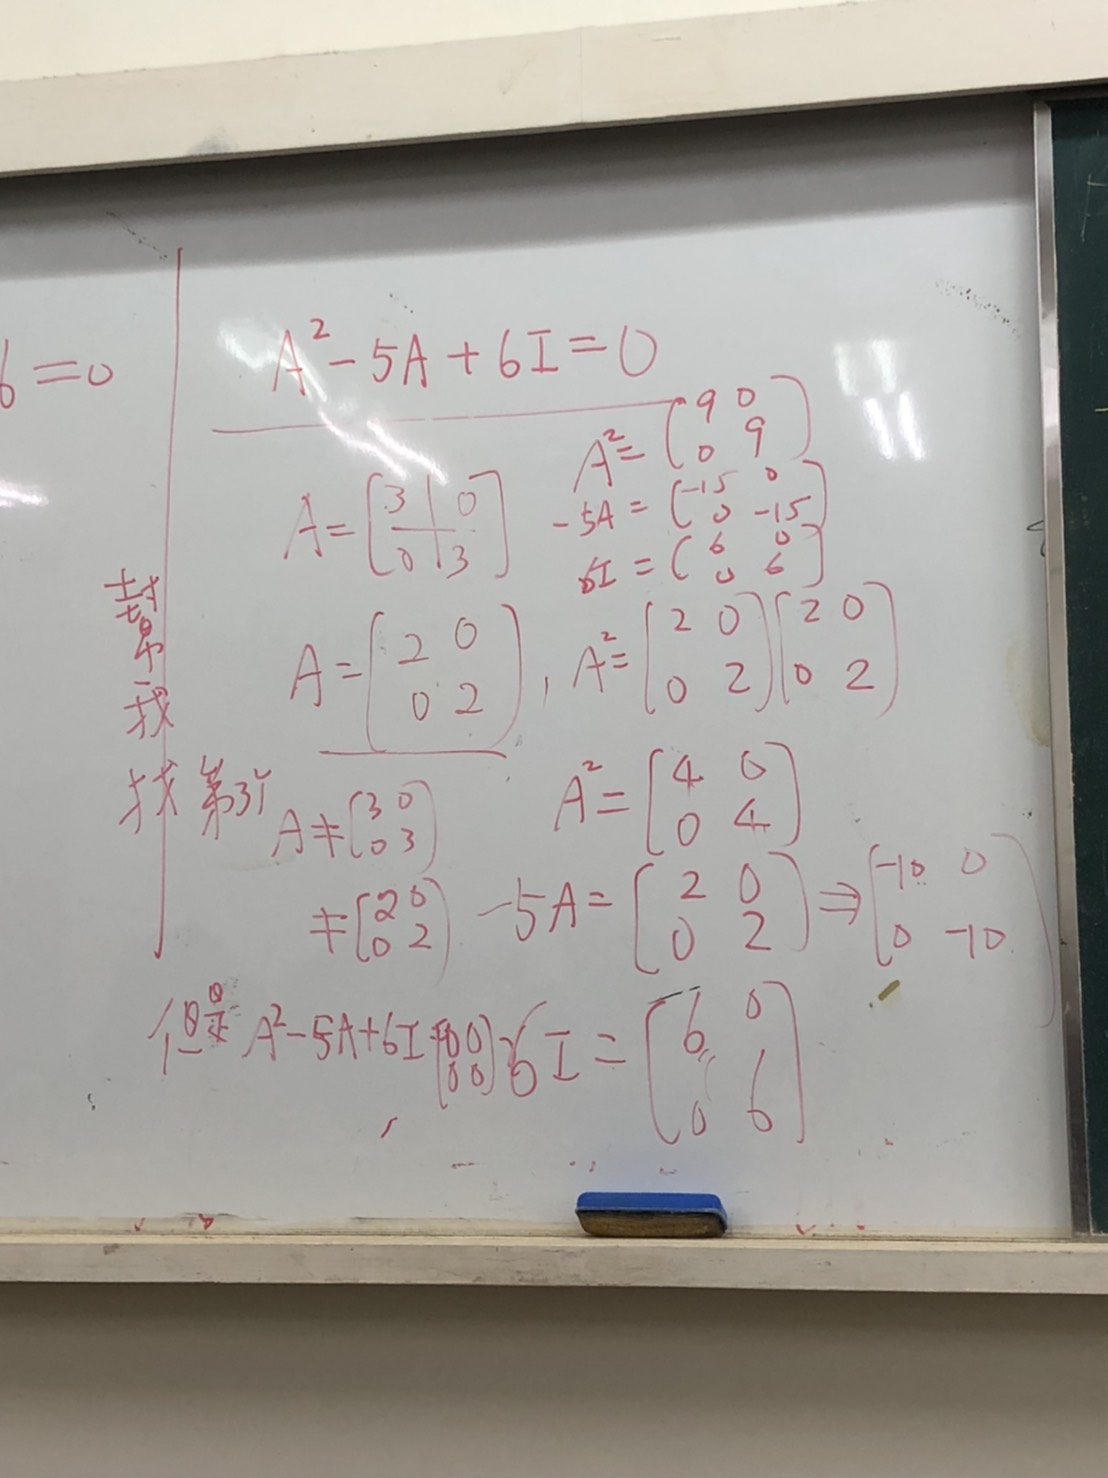 6=0
A²-5A+6I=0
A²=(9 0
0 9)
A=[3 0
0 3]
-5A=(-15 0
0 -15)
6I=(6 0
0 6)
幫我
A=(2 0
0 2), A²=(2 0
0 2)(2 0
0 2)
找第3個
A≠(3 0
0 3)
≠(2 0
0 2)
A²=(4 0
0 4)
-5A=(2 0
0 2)⇒(-10 0
0 -10)
但是 A²-5A+6I=(0 0
0 0)
6I=(6 0
0 6)